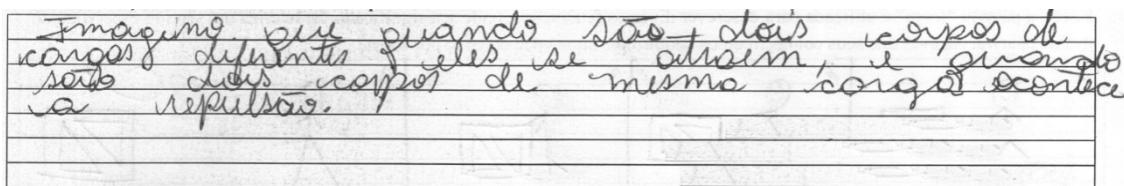 Imagino que quando são dois corpos de
cargas diferentes eles se atraem, e quando
são dois corpos de mesma carga acontece
a repulsão.